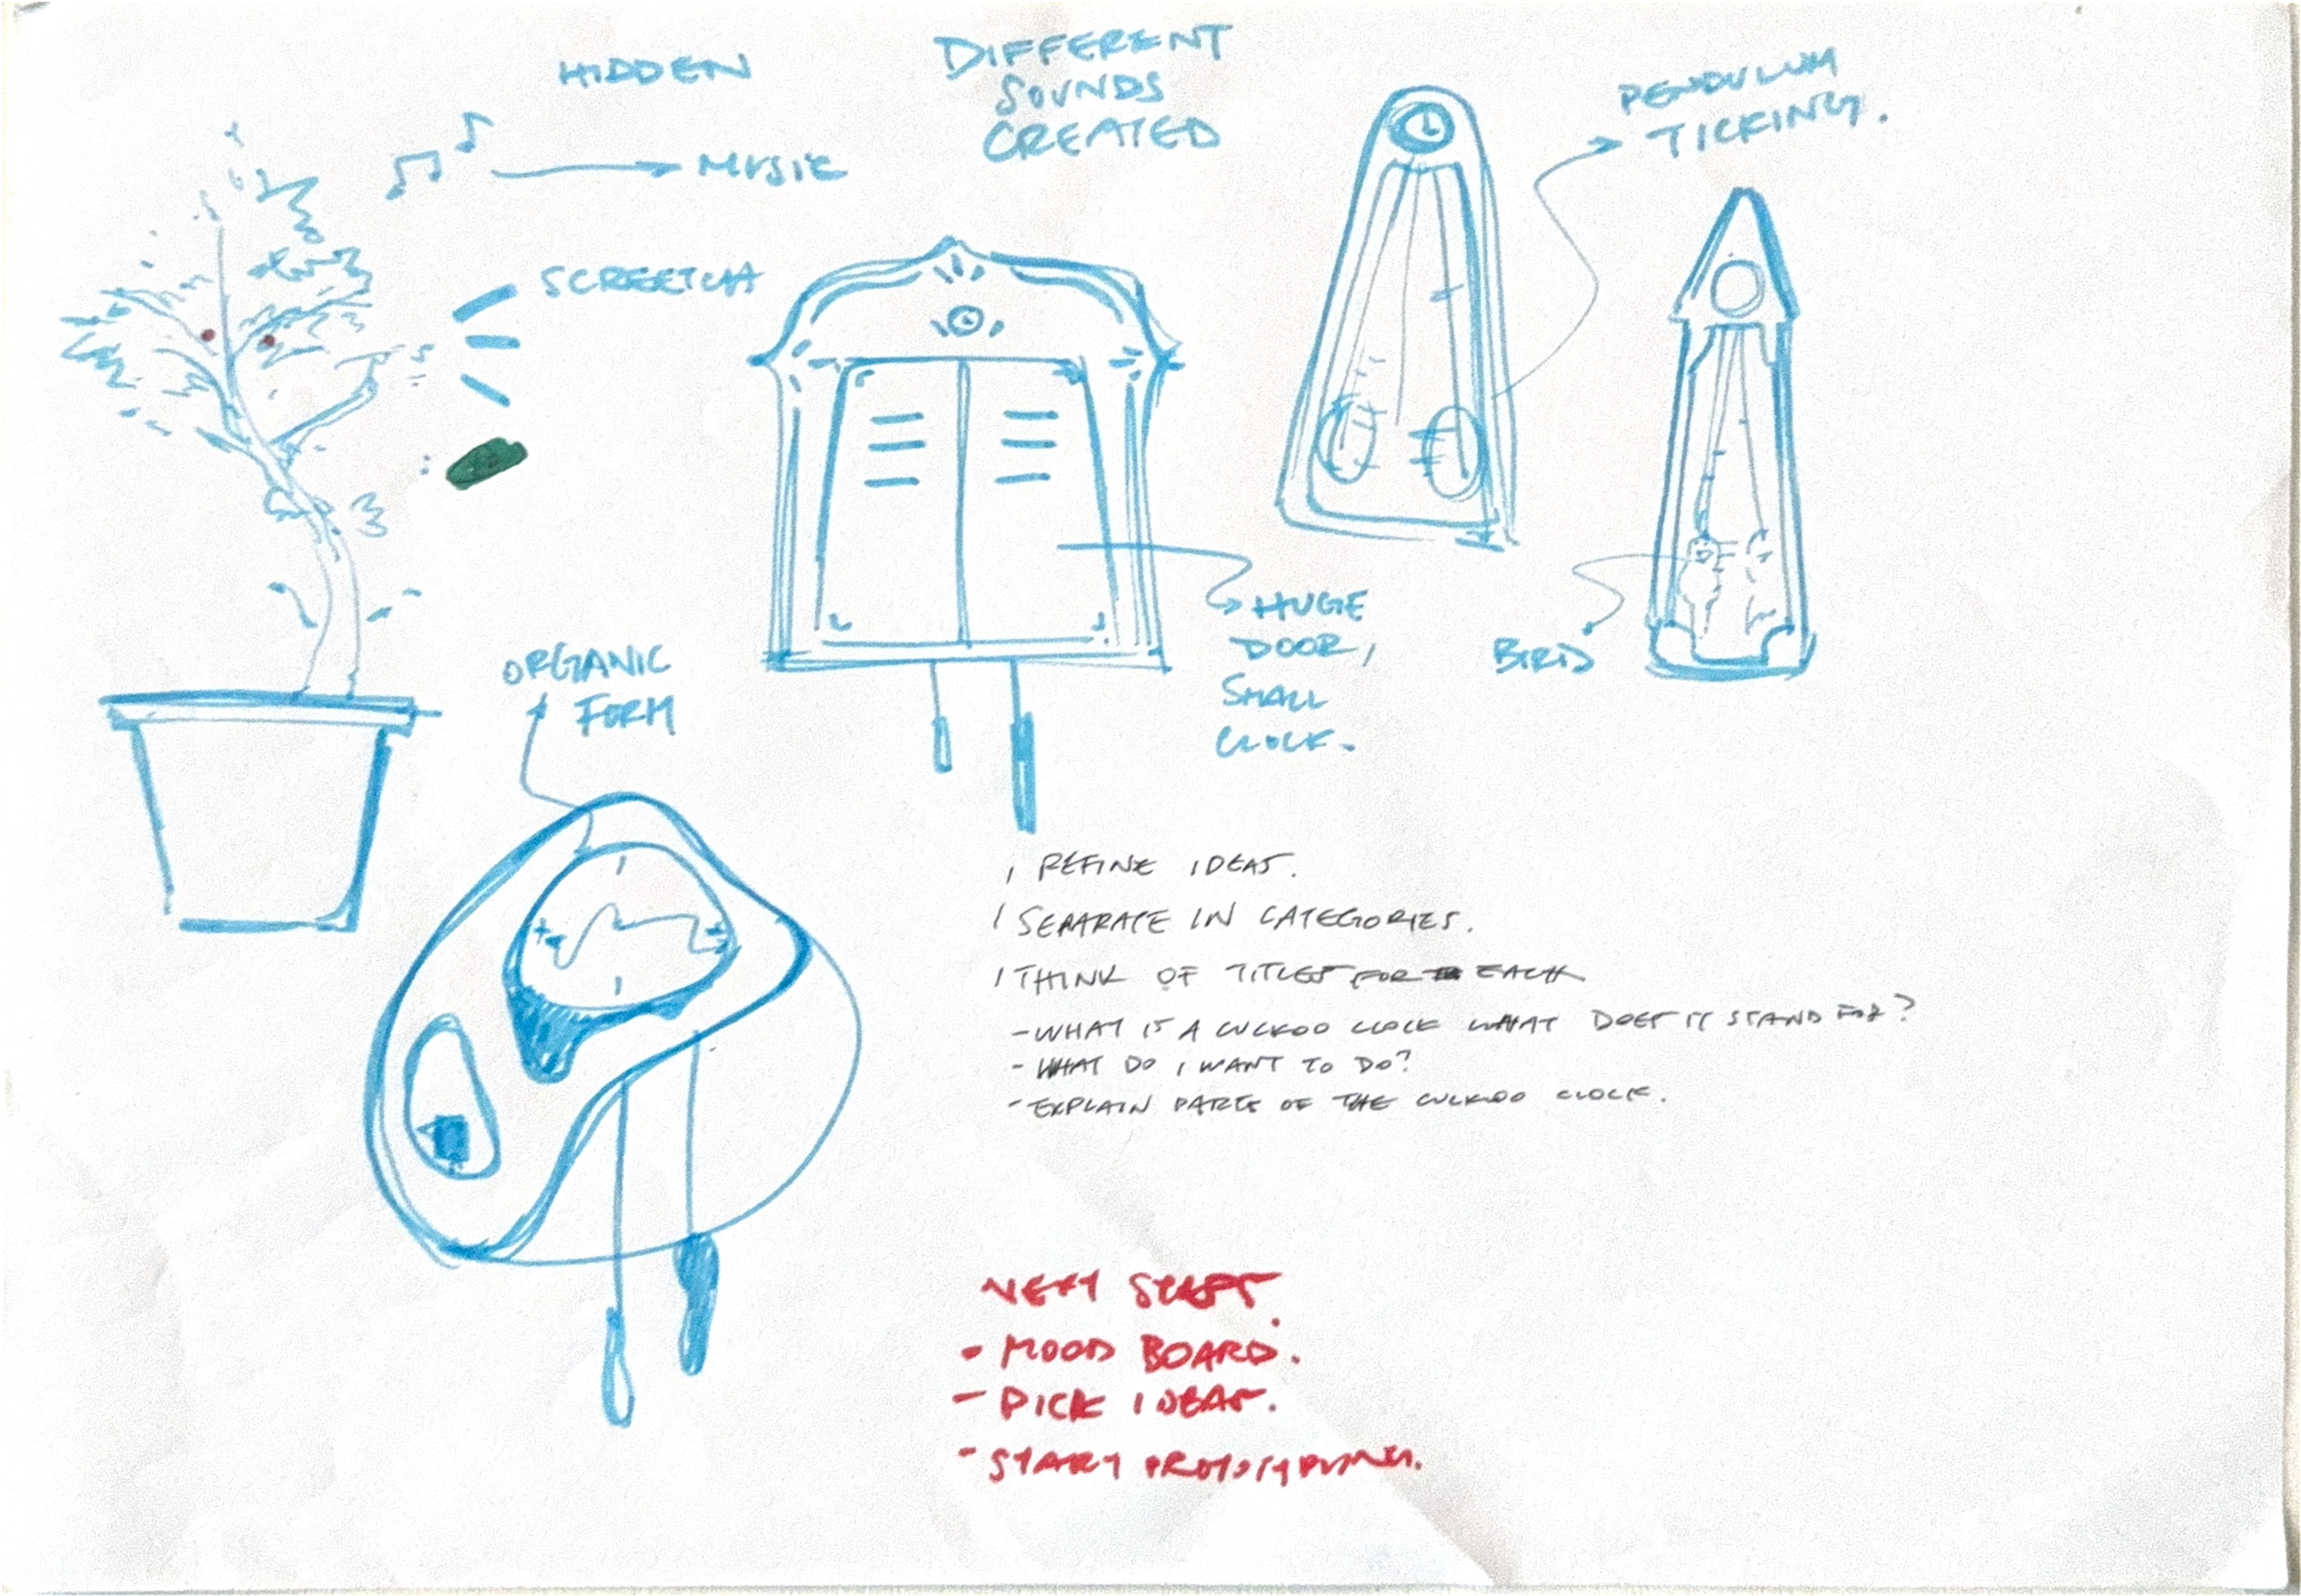 HIDDEN
MUSIC
SCREETCH
DIFFERENT
SOUNDS
CREATED
PENDULUM
TICKING.
HUGE
DOOR,
SMALL
CLOCK.
BIRD
ORGANIC
FORM
/ REFINE IDEAS.
/ SEPARATE IN CATEGORIES.
/ THINK OF TITLES FOR EACH
- WHAT IS A CUCKOO CLOCK WHAT DOES IT STAND FOR?
- WHAT DO I WANT TO DO?
- EXPLAIN PARTS OF THE CUCKOO CLOCK.
NEXT STEPS.
- MOOD BOARD.
- PICK IDEAS.
- START PROTOTYPING.